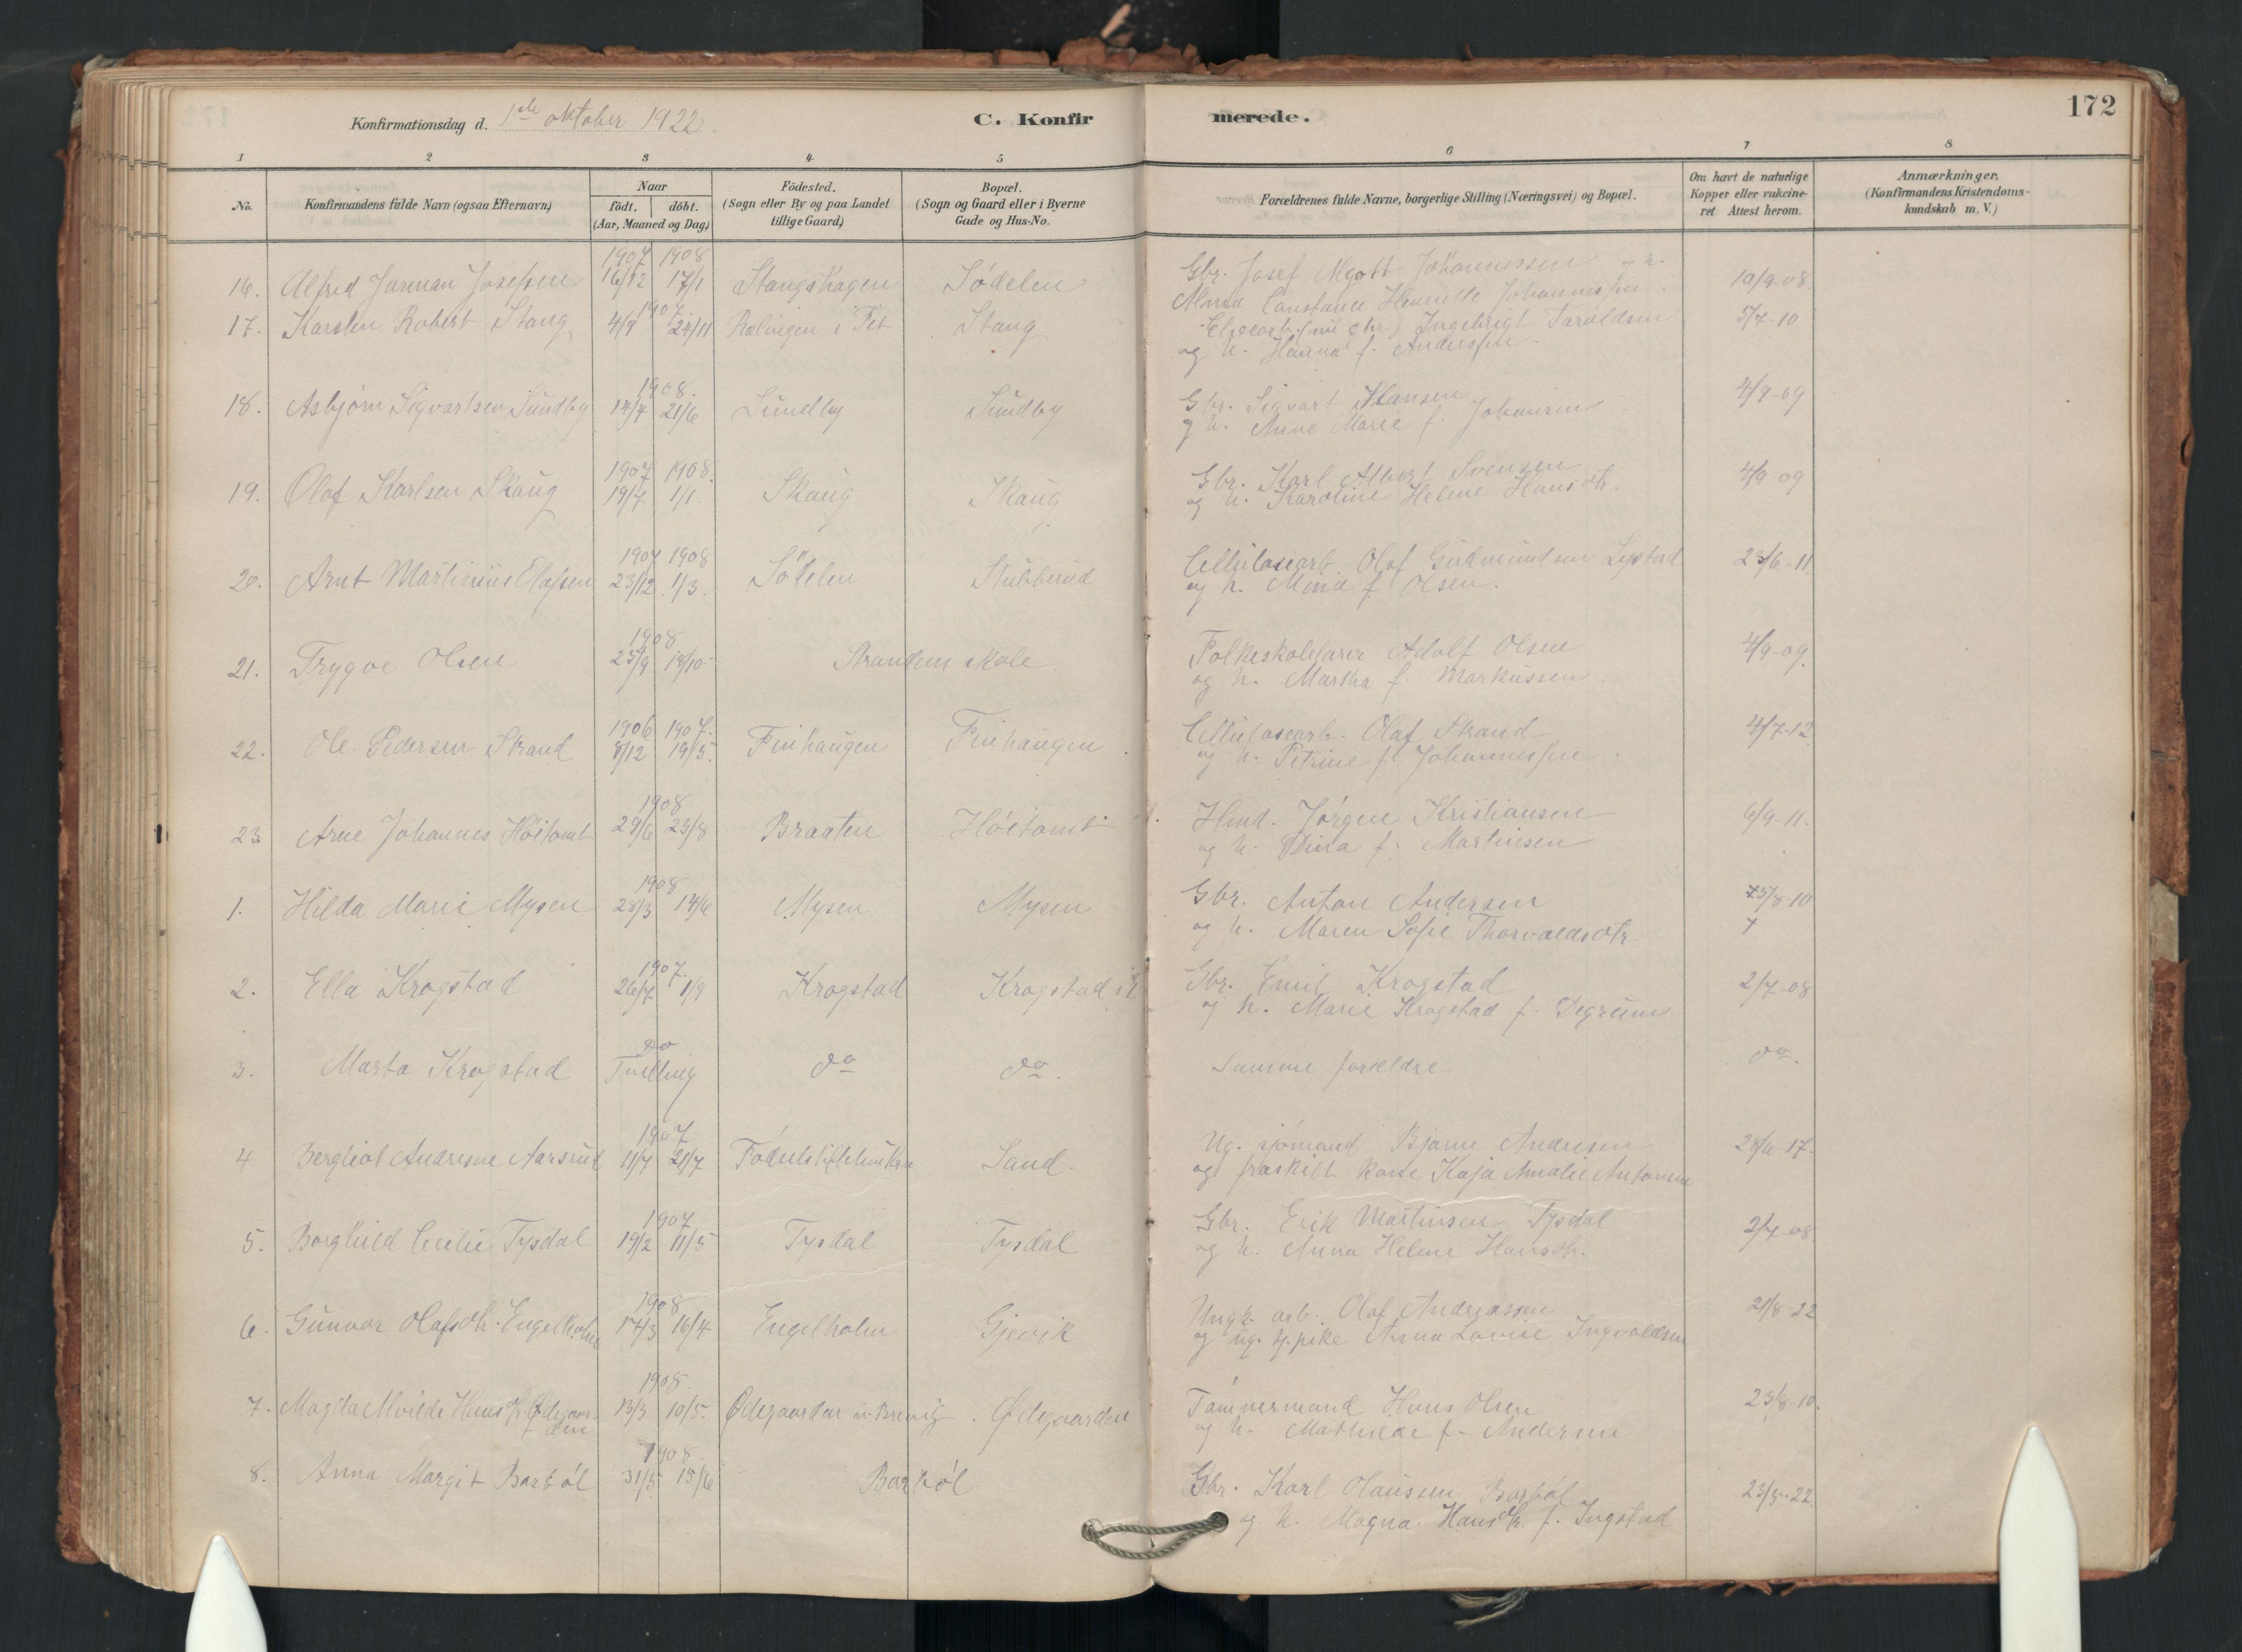 172
Konfirmationsdag d. 1ste oktober 1922.
C. Konfirmerede.
1 2 3 4 5 6 7 8
No. Konfirmandens fulde Navn (ogsaa Efternavn) Naar födt. döbt. (Aar, Maaned og Dag) Födested. (Sogn eller By og paa Landet tillige Gaard) Bopæl. (Sogn og Gaard eller i Byerne Gade og Hus-No. Forældrenes fulde Navne, borgerlige Stilling (Næringsvei) og Bopæl. Om havt de naturlige Kopper eller vakcineret Attest herom. Anmærkninger. (Konfirmandens Kristendomskundskab m. V.)
1907 1908
16. Alfred Josefsen 16/12 17/1 Stangskogen Södelen Gbr. Josef Johannessen
Constance Henriette Johannessen 10/9-08
1907
17. Karsten Robert Stang 4/9 24/11 Rælingen i Fet Stang Ingebrigt Taraldsen 5/7-10
og h. Hanna f. Anderssen
1908.
18. Asbjörn Sigvartsen Sundby 14/4 21/6 Sundby Sundby Gbr. Sigvart Hansen 4/9-09
og h. Anne Marie f. Johansen
1907 1908.
19. Olaf Karlsen Skaug 19/7 1/1. Skaug Skaug Gbr. Karl Albert Svensen 4/9-09
og h. Karoline Helene Hansdtr.
1907 1908
20. Arnt Martinius Olafsen 23/12 1/3. Södelen Stubberud Cellulosearb. Olaf Gudmundsen Lystad 23/6-11
og h. Mina f. Olsen.
1908
21. Trygve Olsen 25/9 18/10 Strandens skole Folkeskolelærer Adolf Olsen 4/9-09.
og h. Martha f. Markussen.
1906 1907.
22. Ole Pedersen Strand 8/12 19/5. Finhaugen Finhaugen Cellulosearb. Olaf Strand 4/7-12
og h. Petrine f. Johannessen.
1908
23. Arne Johannes Höitomt 29/6 23/8 Braaten Höitomt Hmd. Jörgen Kristiansen 6/9-11.
og h. Dina f. Martinsen
1908
1. Hilda Marie Mysen 28/3 14/6 Mysen Mysen Gbr. Anton Andersen 5/8-10
og h. Maren Sofie Thorvaldsdtr.
1907
2. Ella Krogstad 26/7 1/9 Krogstad Krogstad Gbr. Emil Krogstad 2/7-08
og h. Marie Krogstad f. Degrum
do
3. Marta Krogstad Tvilling do do. Samme forældre do.
1907
4 Bergliot Andresen Aarsrud 11/4 21/7 Födselsstiftelsen Kra Sand. Ug. sjömand Bjarne Andresen 28/6-17.
og fraskilt kone Kaja Amalie Antonsen
1907
5. Borghild Cecilie Tysdal 19/2 11/5 Tysdal Tysdal Gbr. Erik Martinsen Tysdal 2/7 08.
og h. Anna Helene Hansdtr.
1908
6. Gunvor Olafsdtr. Engelholm 17/3 16/4 Engelholm Gjevik Ungk. arb. Olaf Andreassen 21/8-22
og ug. tj.pike Anna Lovise Ingvaldsen
1908.
7. Magda Alvilde Hansdtr. Ødegaarden 13/3 10/5. Ødegaarden u. Brevig Ødegaarden Tömmermand Hans Olsen 23/8-10.
og h. Mathilde f. Andersen
1908.
8. Anna Margit Barböl 31/5 15/6 Barböl Gbr. Karl Olaussen Barböl 23/5-22.
og h. Magna Hansdtr. f. Ingstad